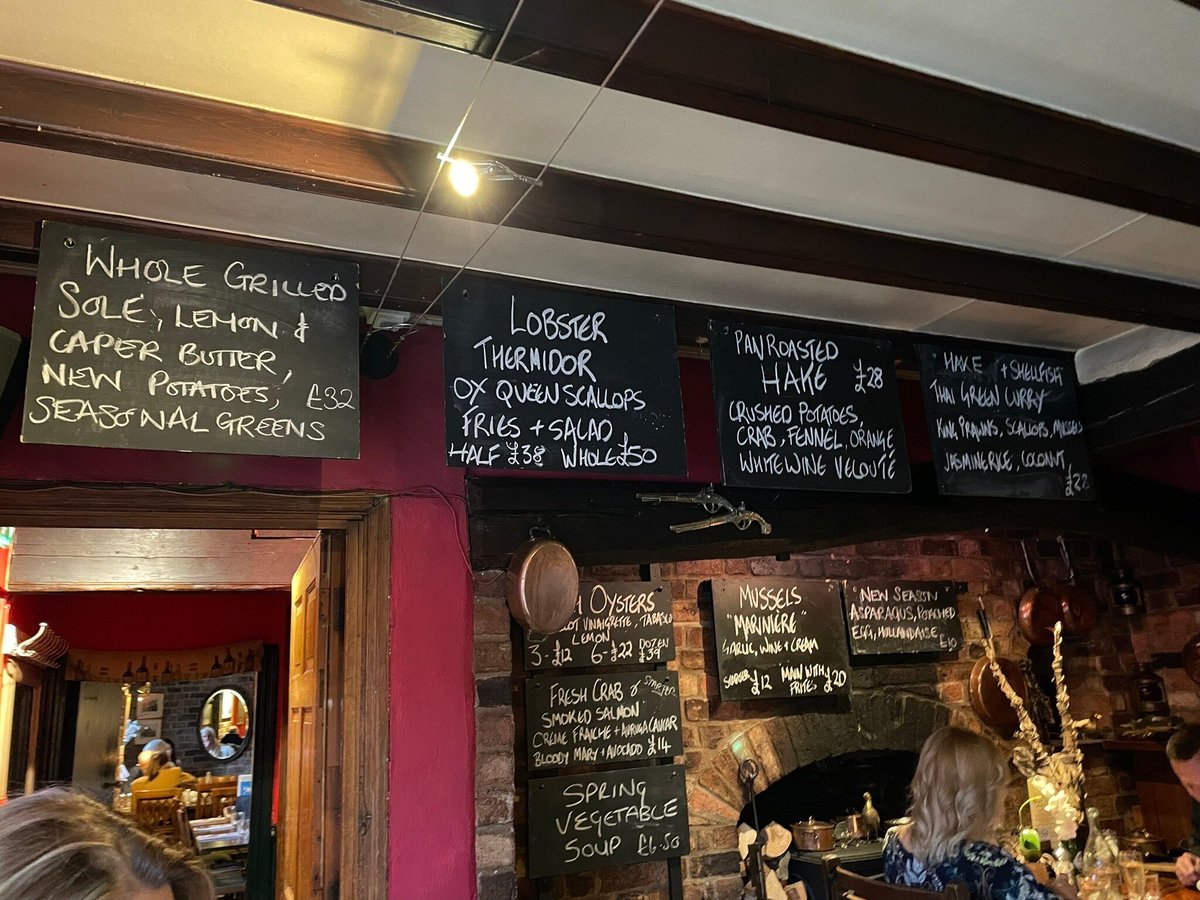 WHOLE GRILLED
SOLE, LEMON &
CAPER BUTTER,
NEW POTATOES, £32
SEASONAL GREENS
LOBSTER
THERMIDOR
OX QUEEN SCALLOPS
FRIES + SALAD
HALF £38 WHOLE £50
PAN ROASTED
HAKE £28
CRUSHED POTATOES,
CRAB, FENNEL, ORANGE
WHITE WINE VELOUTÉ
HAKE + SHELLFISH
THAI GREEN CURRY
KING PRAWNS, SCALLOPS, MUSSELS
JASMINE RICE, COCONUT
OYSTERS
VINAIGRETTE, TABASCO
LEMON
3 - £12 6 - £22 DOZEN
£39
FRESH CRAB &
SMOKED SALMON
CRÈME FRAICHE + AVRUGA CAVIAR
BLOODY MARY + AVOCADO £14
SPRING
VEGETABLE
SOUP £6.50
MUSSELS
"MARINIÈRE"
GARLIC, WINE + CREAM
£12 MAIN WITH
FRITES £20
"NEW SEASON
ASPARAGUS, POTACHED
EGG, HOLLANDAISE
£10